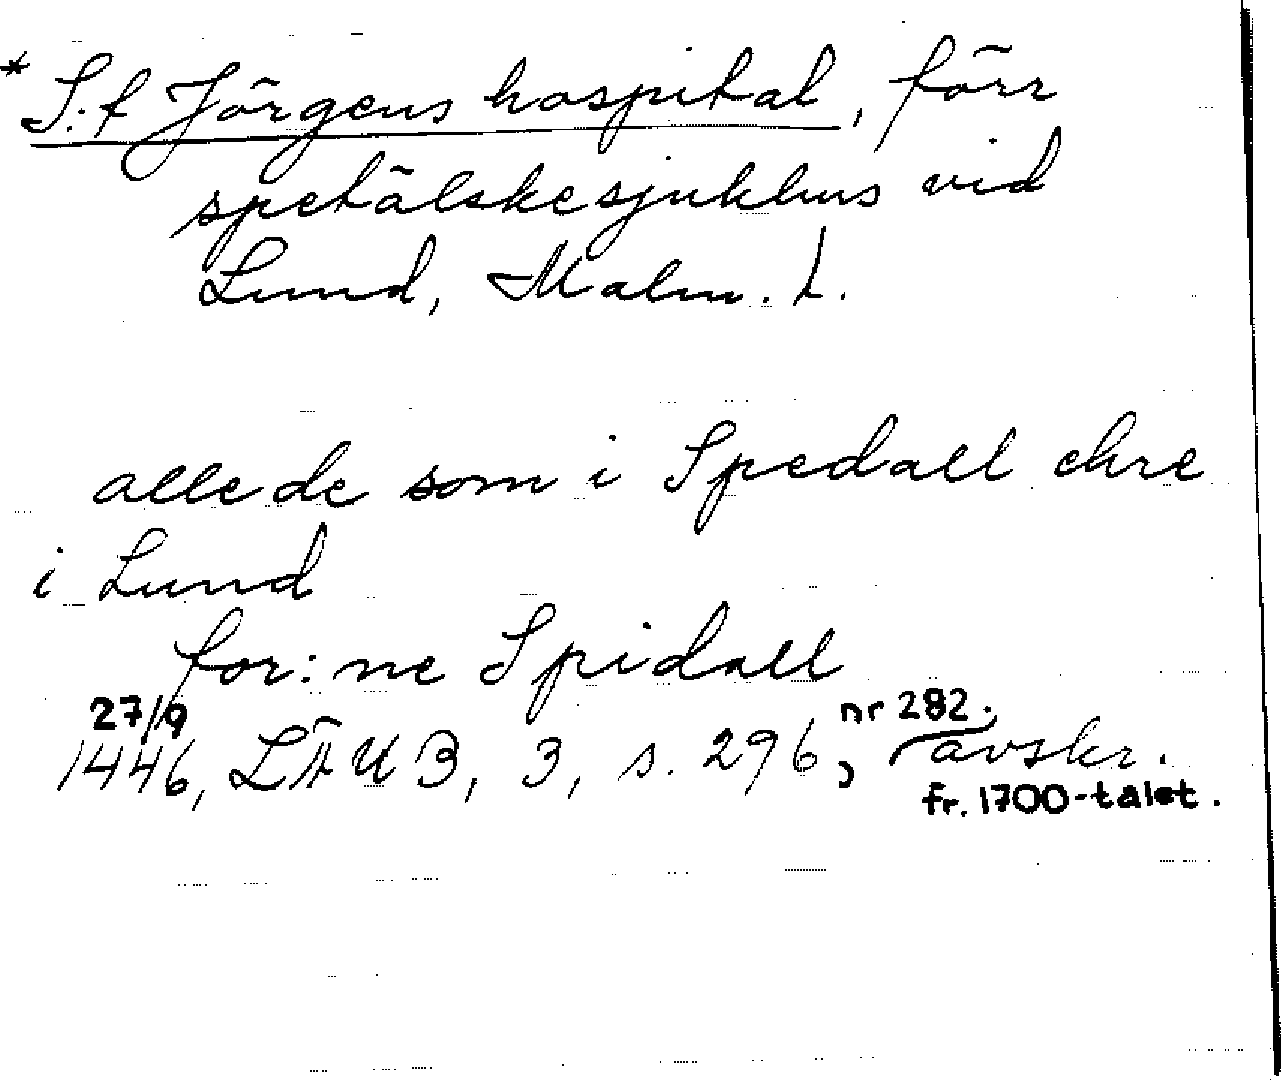 * S:t Jörgens hospital, förr
spetälskesjukhus vid
Lund, Malm. l.
alle de som i Spedall ehre
i Lund
for:ne Spidall
27/9
1446, LÄUB, 3, s. 296, nr 282. avskr.
fr. 1700-talet.